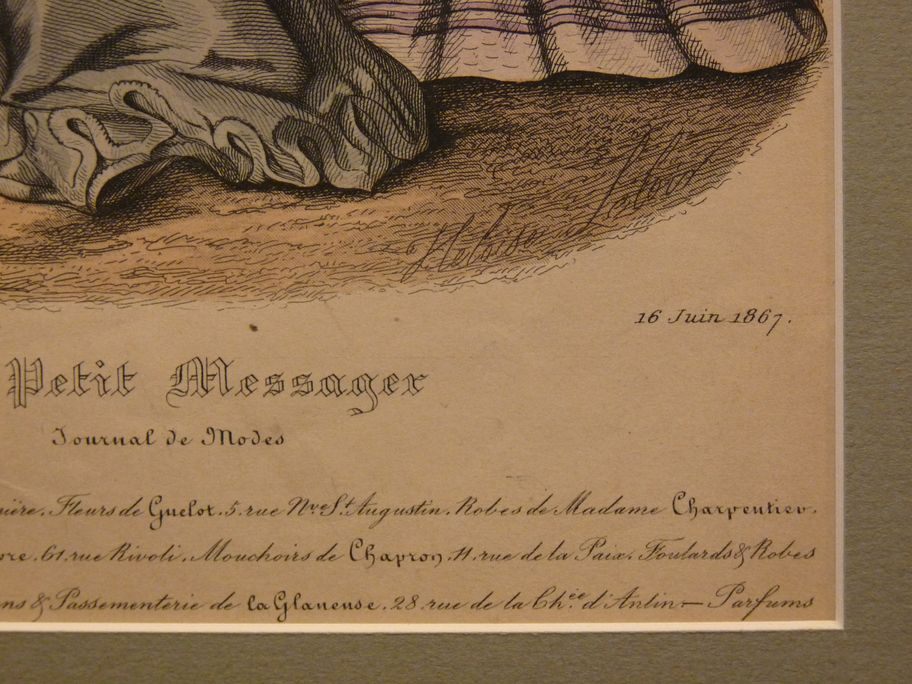 Héloïse Leloir
16 Juin 1867.
Petit Messager
Journal de Modes
Fleurs de Guelot. 5. rue Nve St. Augustin. Robes de Madame Charpentier.
61. rue Rivoli. Mouchoirs de Chapron. 11. rue de la Paix. Foulards & Robes
& Passementerie de la Glaneuse. 28. rue de la Chée. d'Antin — Parfums